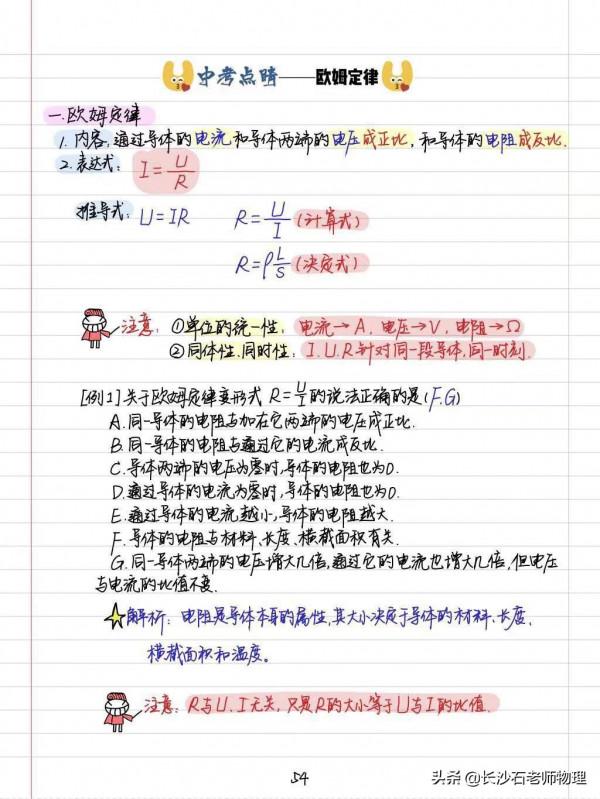 中考点睛——欧姆定律
一.欧姆定律
1.内容:通过导体的电流和导体两端的电压成正比,和导体的电阻成反比.
2.表达式: I=U/R
推导式: U=IR R=U/I (计算式)
R=ρL/S (决定式)
注意: ①单位的统一性: 电流→A, 电压→V, 电阻→Ω
②同体性.同时性: I.U.R针对同一段导体,同一时刻.
[例1]关于欧姆定律变形式 R=U/I 的说法正确的是(F.G)
A.同一导体的电阻与加在它两端的电压成正比.
B.同一导体的电阻与通过它的电流成反比.
C.导体两端的电压为零时,导体的电阻也为0.
D.通过导体的电流为零时,导体的电阻也为0.
E.通过导体的电流越小,导体的电阻越大.
F.导体的电阻与材料、长度、横截面积有关.
G.同一导体两端的电压增大几倍,通过它的电流也增大几倍,但电压
与电流的比值不变.
解析: 电阻是导体本身的属性,其大小决定于导体的材料、长度、
横截面积和温度。
注意: R与U.I无关,只是R的大小等于U与I的比值.
54
头条 @长沙石老师物理